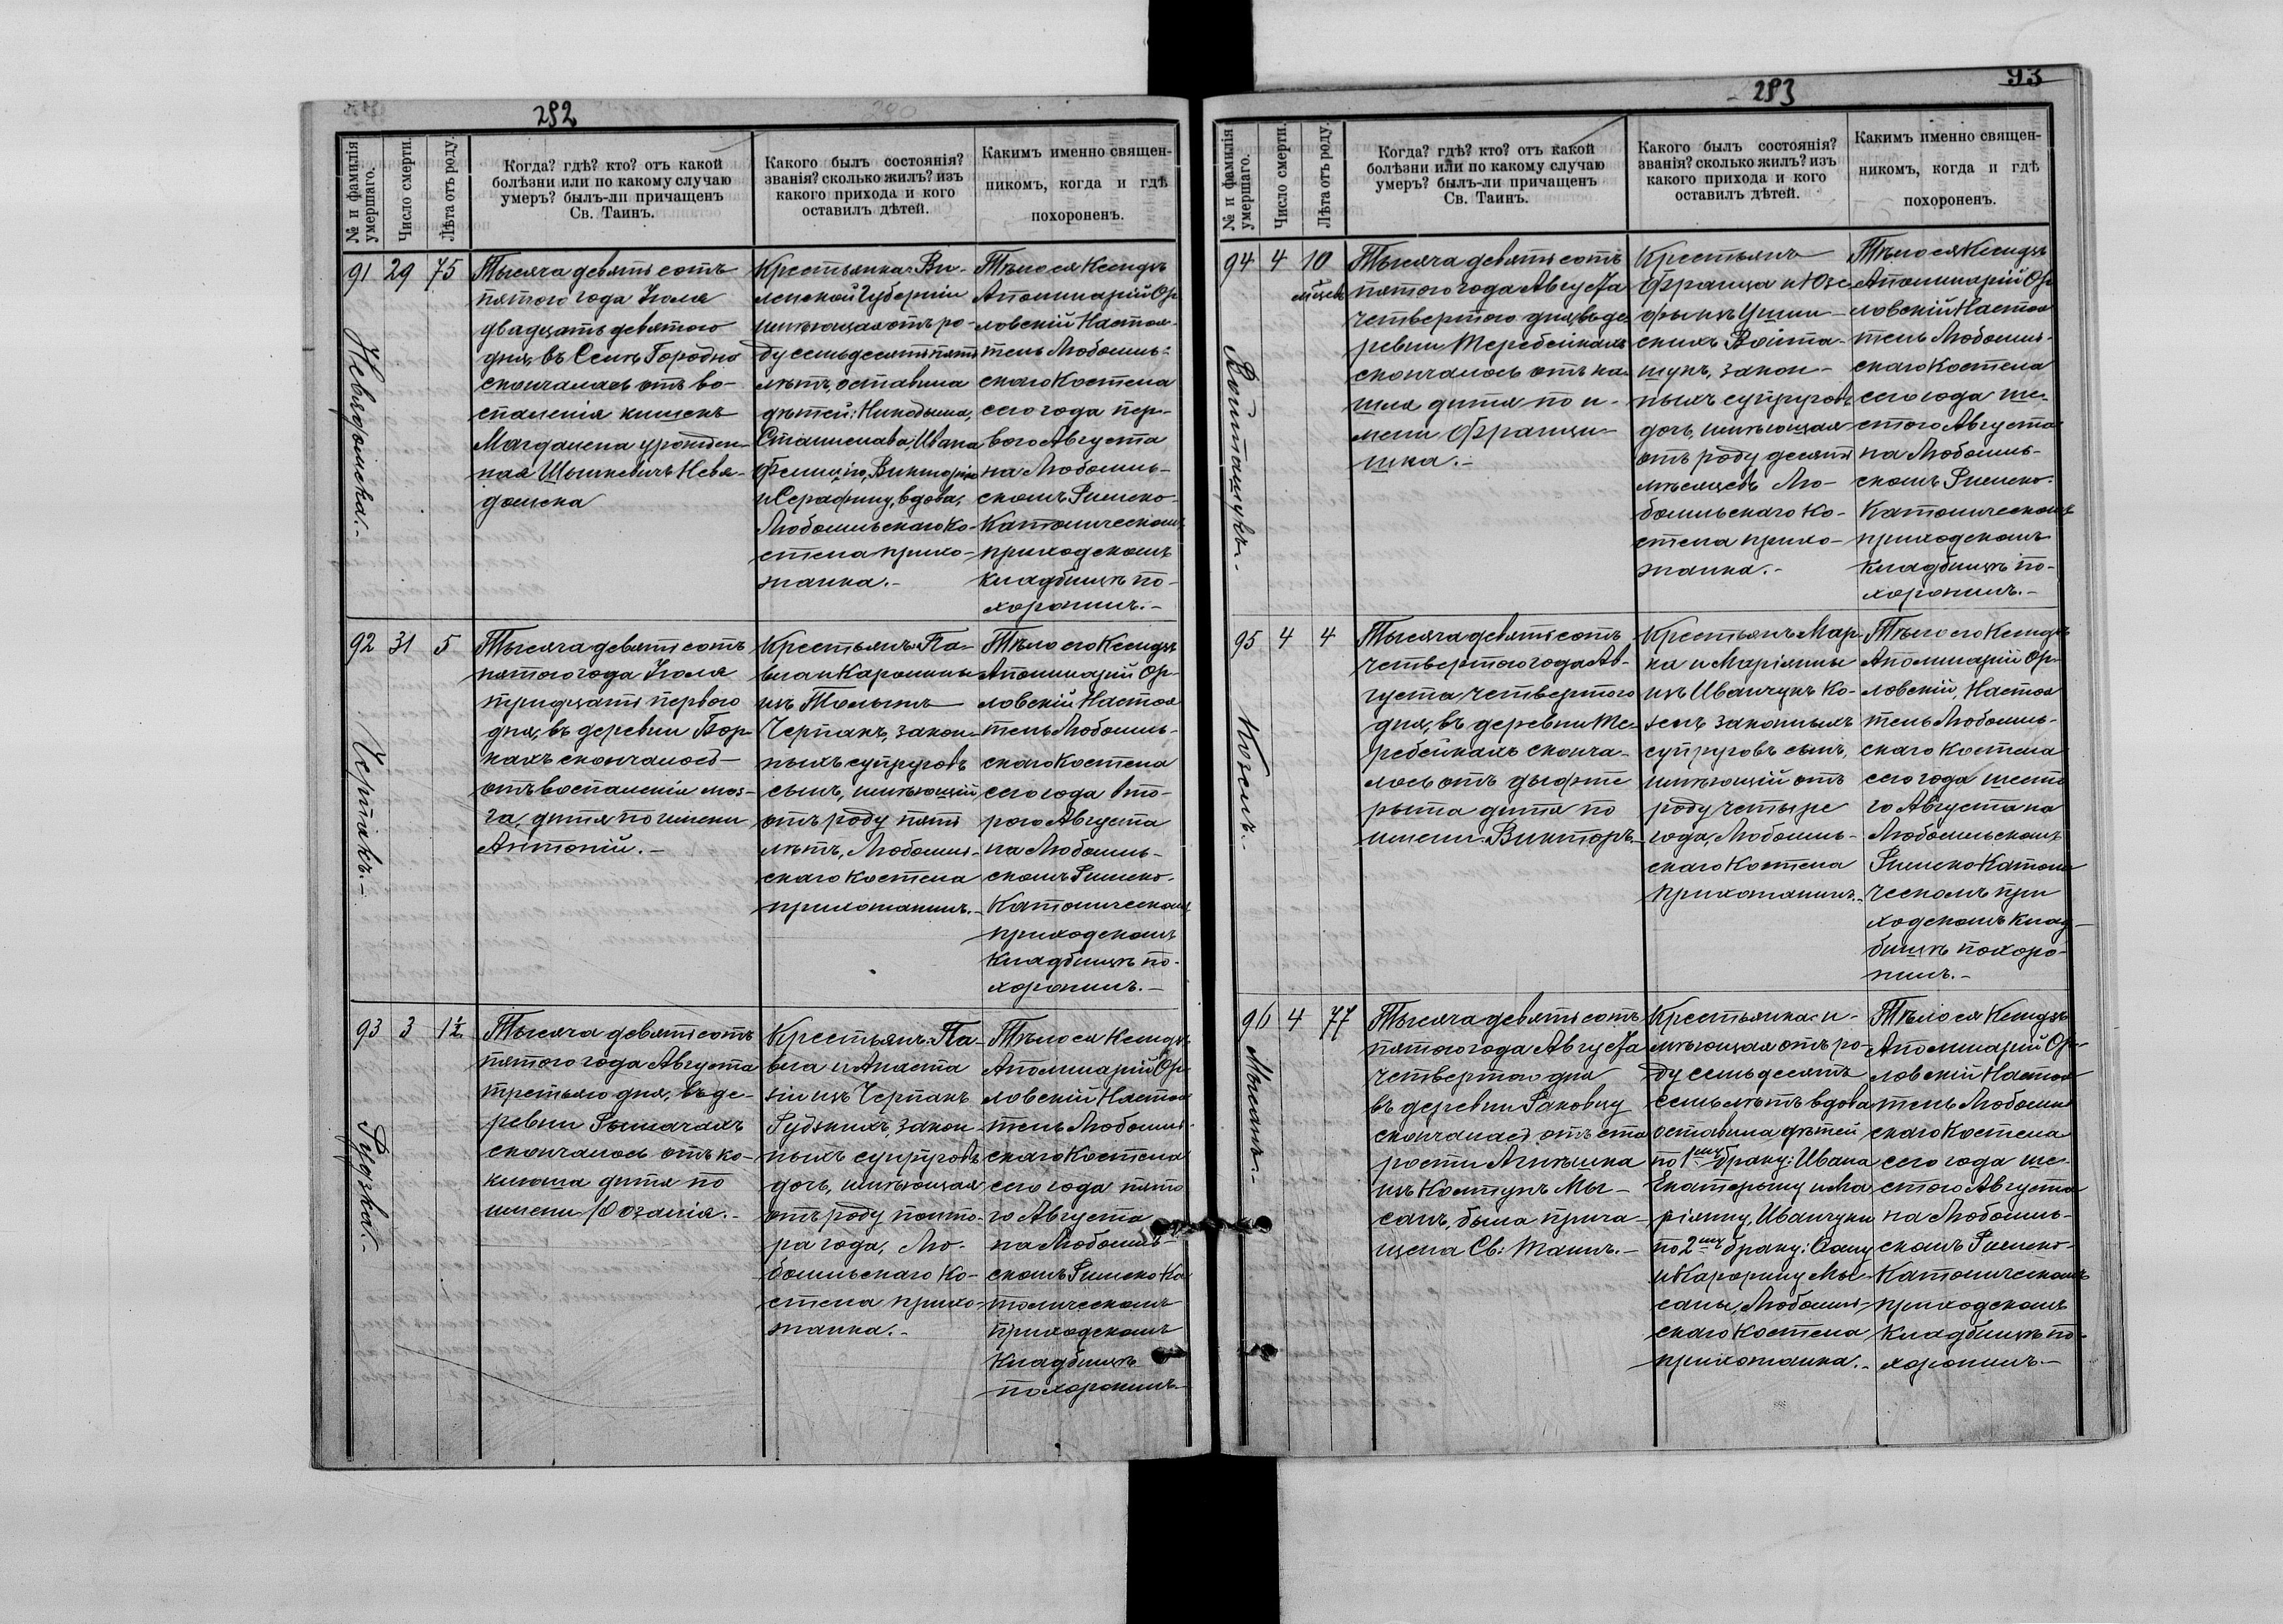 292
№ и фамилія умершаго.
Число смерти.
Лѣта отъ роду.
Когда? гдѣ? кто? отъ какой
болѣзни или по какому случаю
умеръ? былъ-ли причащенъ
Св. Таинъ.
Какого былъ состоянія?
званія? сколько жилъ? изъ
какого прихода и кого
оставилъ дѣтей.
Какимъ именно священ-
никомъ, когда и гдѣ
похороненъ.
91
29
75
Тысяча девятьсотъ
пятого года Іюля
двадцать девятого
дня, въ Селѣ Городно
скончалась отъ во-
спаленія кишекъ
Магдалена урожден-
ная Шышкевичъ Невя-
домска
Крестьянка Ви-
ленской Губерніи
имѣющая отъ ро-
ду семьдесятъ пять
лѣтъ, оставила
дѣтей: Никодыма,
Станислава, Ивана
Фелицію, Викторію
и Серафину, вдова,
Любомльскаго Ко-
стела прихо-
жанка.-
Тѣло ея Ксендзъ
Аполинарій Ор-
ловскій Настоя-
тель Любомль-
скаго Костела
сего года пер-
вого Августа
на Любомль-
скомъ Римско-
Католическомъ
приходскомъ
кладбищѣ по-
хоронилъ.-
Невядомска.-
92
31
5
Тысяча девятьсотъ
пятого года Іюля
тридцать первого
дня, въ деревни Бор-
кахъ скончалось
отъ воспаленія моз-
га, дитя по имени
Антоній.-
Крестьянъ Па-
вла и Каролины
изъ
Черпакъ, закон-
ныхъ супруговъ
сынъ, имѣющій
отъ роду пять
лѣтъ, Любомль-
скаго Костела
прихожанинъ.-
Тѣло его Ксендзъ
Аполинарій Ор-
ловскій Настоя
тель Любомль-
скаго Костела
сего года вто-
рого Августа
на Любомль-
скомъ Римско-
Католическомъ
приходскомъ
Кладбищѣ по-
хоронилъ.-
Черпакъ.-
93
3
1½
Тысяча девятьсотъ
пятого года Августа
третьяго дня, въ де-
ревни Рымачахъ
скончалось отъ ко-
клюша дитя по
имени Розалія.-
Крестьянъ Па-
вла и Анаста
зіи изъ Черпакъ
Рудзкихъ, закон-
ныхъ супруговъ
дочь, имѣющая
отъ роду полто-
ра года, Лю-
бомльскаго Ко-
стела прихо-
жанка.-
Тѣло ея Ксендзъ
Аполинарій Ор-
ловскій Настоя
тель Любомль-
скаго Костела
сего года пято
го Августа
на Любомль-
скомъ Римско Ка
толическомъ
приходскомъ
Кладбищѣ
похоронилъ.-
Рудзка.-
293
93
№ и фамилія умершаго.
Число смерти.
Лѣта отъ роду.
Когда? гдѣ? кто? отъ какой
болѣзни или по какому случаю
умеръ? былъ-ли причащенъ
Св. Таинъ.
Какого былъ состоянія?
званія? сколько жилъ? изъ
какого прихода и кого
оставилъ дѣтей.
Какимъ именно священ-
никомъ, когда и гдѣ
похороненъ.
94
4
10
Тысяча девятьсотъ
пятого года Августа
четвертого дня, въ де
ревни Теребейкахъ
скончалось отъ ка
шля дитя по и-
мени Франци-
шка.-
Крестьянъ
Франца и Юзе-
фы изъ
Войта-
шукъ, закон-
ныхъ супруговъ
дочь, имѣющая
отъ роду десять
мѣсяцевъ Лю-
бомльскаго Ко-
стела прихо-
жанка.-
Тѣло ея Ксендзъ
Аполинарій Ор
ловскій Настоя
тель Любомль-
скаго Костела
сего года ше-
стого Августа
на Любомль-
скомъ Римско-
Католическомъ
приходскомъ
кладбищѣ по-
хоронилъ.-
Войташукъ.-
95
4
4
Тысяча девятьсотъ
четвертого года Ав-
густа четвертого
дня, въ деревни Те-
ребейкахъ сконча-
лось отъ дыфте
рыта дитя по
имени Викторъ.-
Крестьянъ Мар-
ка и Маріянны
изъ Иванчукъ Ко-
зелъ законныхъ
супруговъ сынъ,
имѣющій отъ
роду четыре
года, Любомль-
скаго Костела
прихожанинъ.-
Тѣло его Ксендзъ
Аполинарій Ор-
ловскій, Настоя
тель Любомль-
скаго Костела
сего года шесто
го Августа на
Любомльскомъ
Римско Католи
ческомъ при
ходскомъ клад-
бищѣ похоро-
нилъ.-
Козелъ.-
96
4
77
Тысяча девятьсотъ
пятого года Августа
четвертого дня
въ деревни Раковцу
скончалась отъ ста
рости Агнѣшка
изъ Колтунъ Мы-
сакъ, была прича-
щена Св: Таинъ.-
Крестьянка и-
мѣющая отъ ро-
ду семьдесятъ
семь лѣтъ вдова
оставила дѣтей
по 1му браку: Ивана
Екатерину и Ма
ріянну, Иванчуки
по 2му браку:
Мы-
Любомль-
скаго Костела
прихожанка.-
Тѣло ея Ксендзъ
Аполинарій Ор-
ловскій Настоя
тель Любомль
скаго Костела
сего года ше-
стого Августа
на Любомль-
скомъ Римско-
Католическомъ
приходскомъ
Кладбищѣ по-
хоронилъ.-